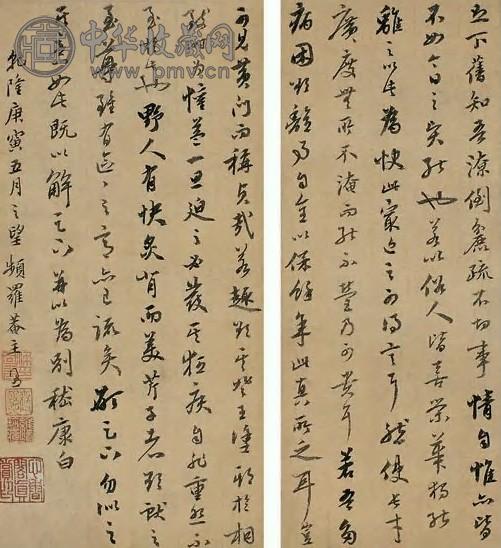 足下舊知吾潦倒麤疏不切事情自惟亦皆
不如今日之賢能也若以俗人皆喜榮華獨能
離之以此為快此最近之可得言耳然使長才
廣度無所不淹而能不營乃可貴耳若吾多
病困欲離事自全以保餘年此真所乏耳豈
可見黃門而稱貞哉若趣欲共登王塗期於相
致時為懽益一旦迫之必發其狂疾自非重怨不
至於此也野人有快炙背而美芹子者欲獻之
至尊雖有區區之意亦已疏矣願足下勿似之
其意如此既以解足下并以為別嵇康白
乾隆庚寅五月之望頻羅菴主書
中华收藏网
www.pmv.cn